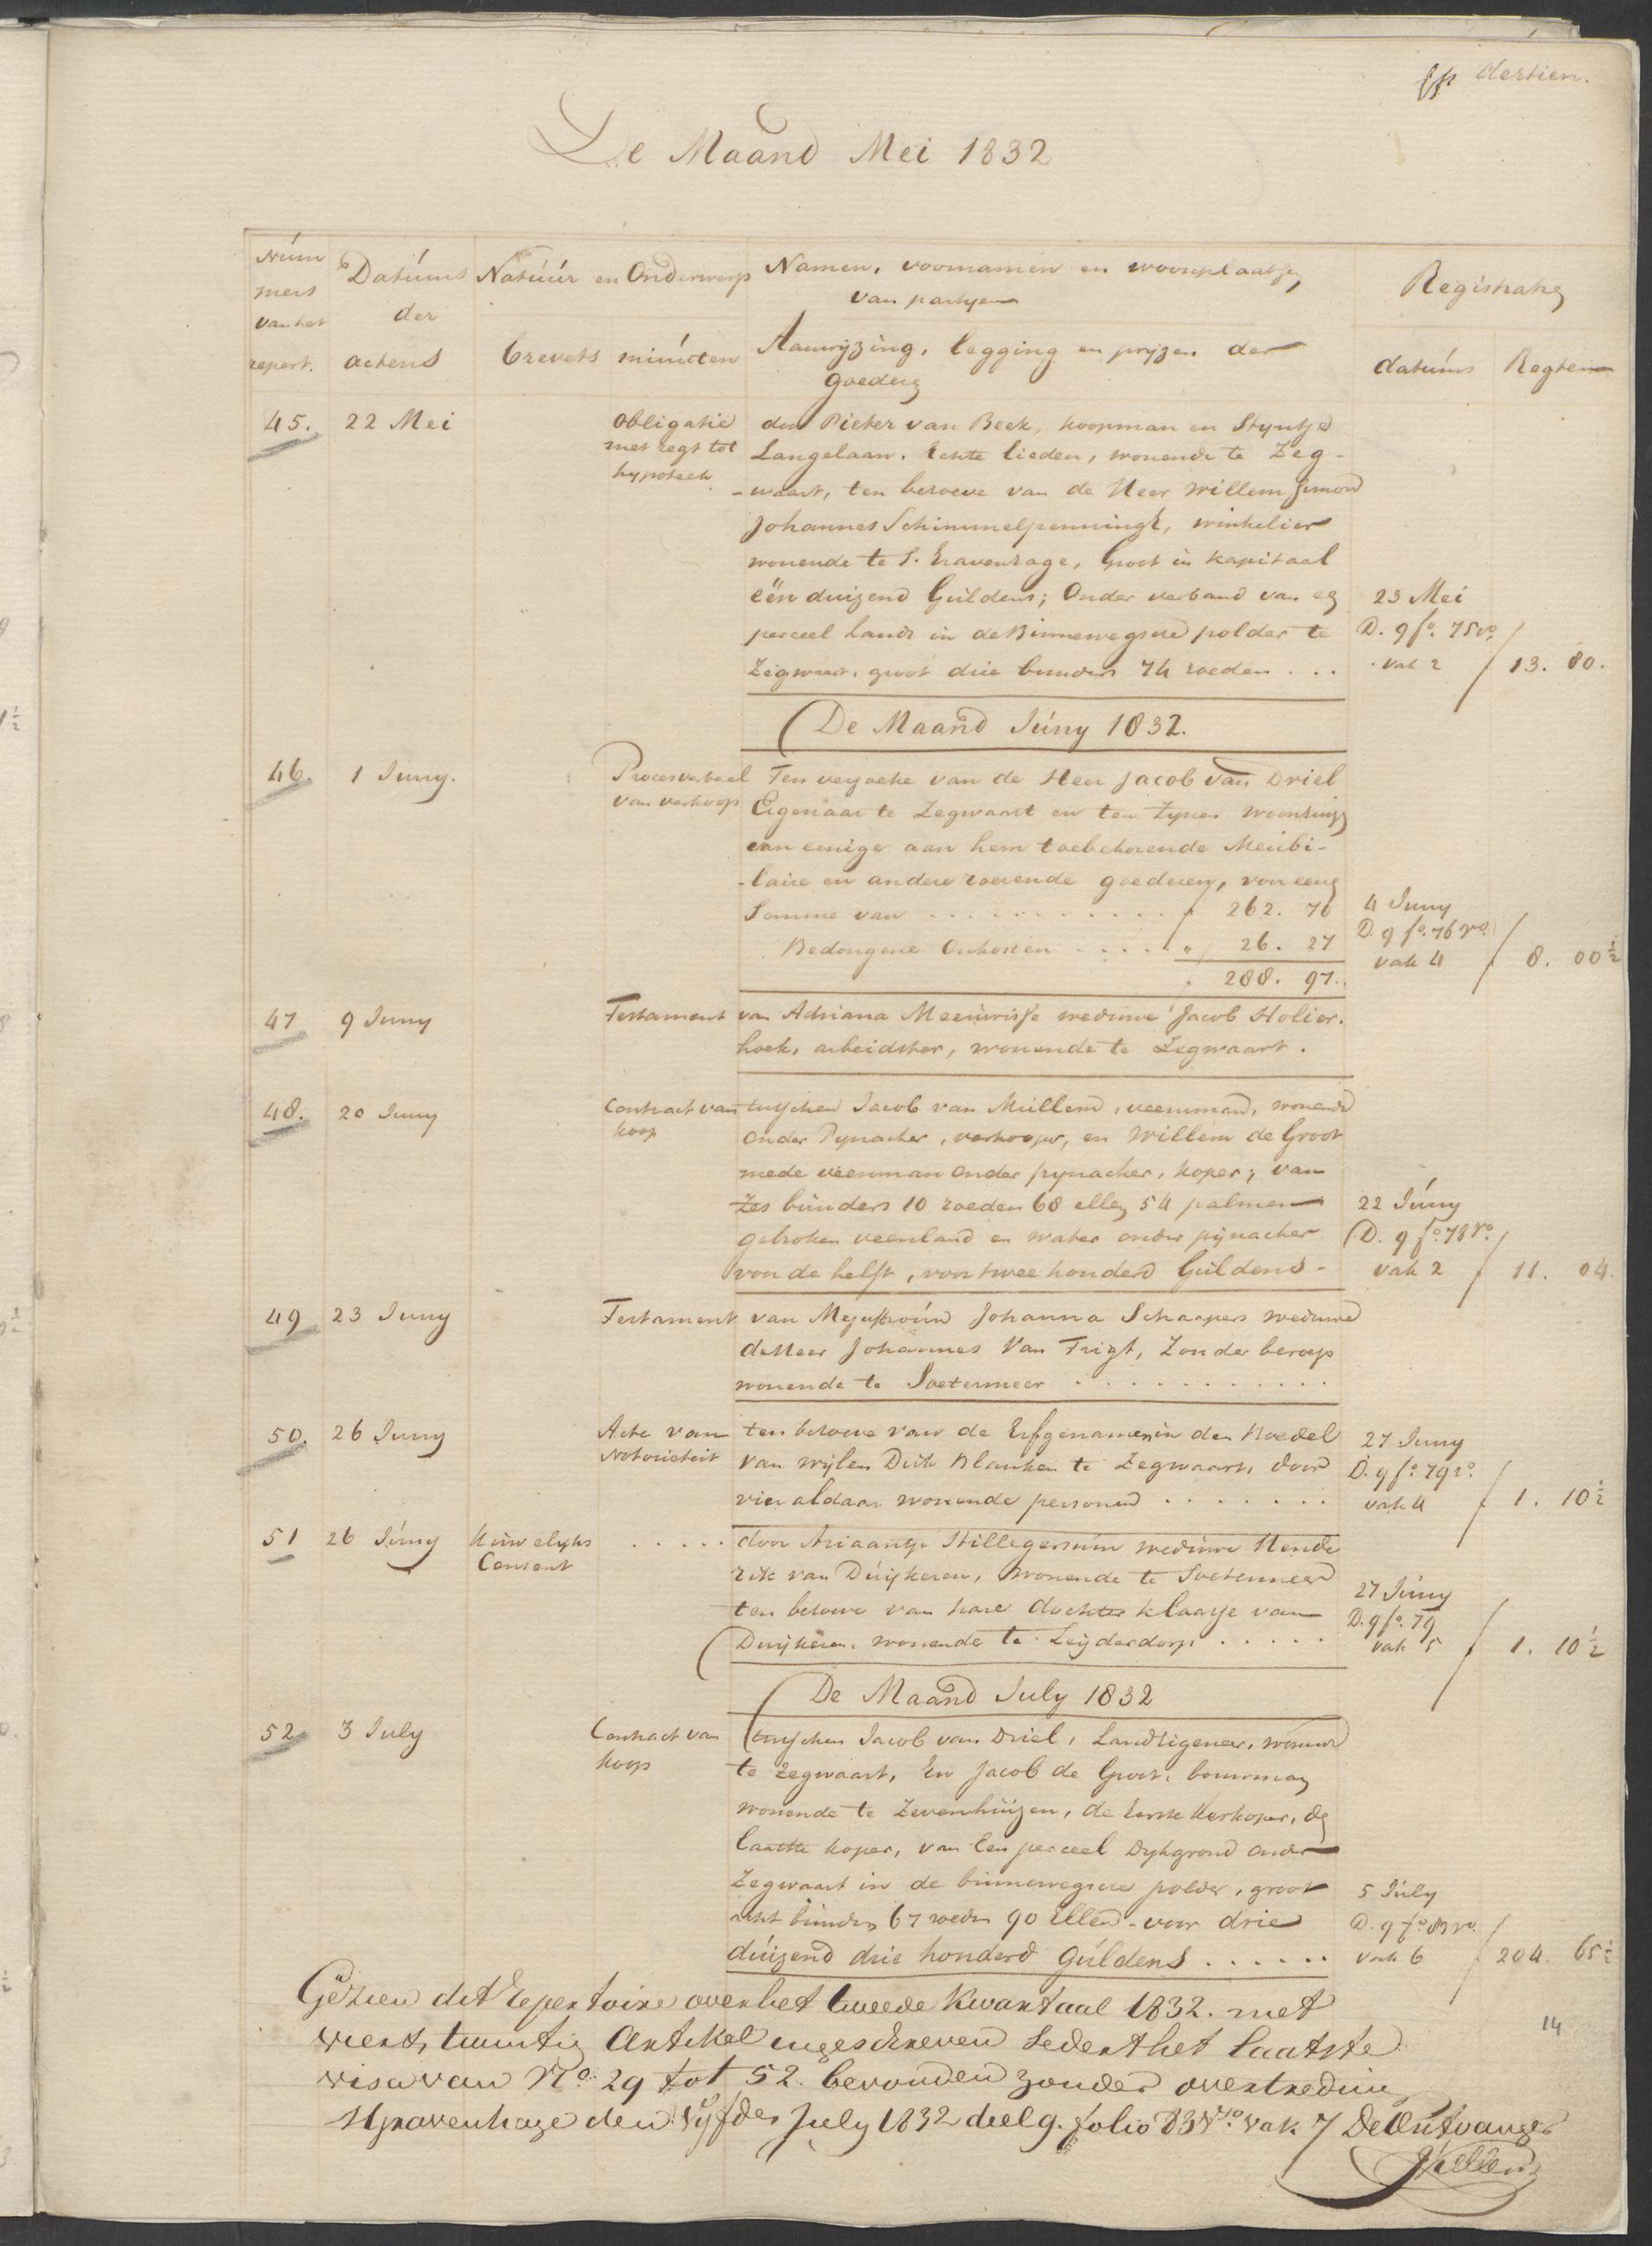 dertien.
De Maand Mei 1832
Núm
mers
van het
repert.
Datúms
der
actens
Natúúr en Onderwerp
brevets minúten
Namen, voornamen en woonplaatse,
van partyen
Aanwyzing, legging en pryzen der
goederen
Registratie
datúms Regten
45. 22 Mei
Obligatie
met regt tot
hypotheek
door Pieter van Beek, koopman en Styntje
Langelaan, Echte lieden, wonende te Zeg-
-waart, ten behoeve van de Heer Willem Simon
Johannes Schimmelpenningh, winkelier
wonende te S. Gravenhage, Groot in kapitaal
één duizend Guldens; Onder verband van een
perceel Lands in de Binnewegsche polder te
Zegwaart, groot drie bunders 74 roeden . . .
23 Mei
D. 9 fo. 75 vo.
vak 2
13. 80.
De Maand Júny 1832.
46. 1 Juny.
Procesverbaal
van verkoop
Ten verzoeke van de Heer Jacob van Driel
Eigenaar te Zegwaart en ten Zynen woonhuize
van eenige aan hem toebehorende Meubi-
-laire en andere roerende goederen, voor eene
Somme van . . . . . . . . . . . . f 262. 70
Bedongene Onkosten . . . . . " 26. 27
288. 97.
4 Juny
D. 9 fo. 76 vo.
vak 4
8. 00 1/2
47 9 Juny
Testament
van Adriana Meeuwisse weduwe Jacob Holier.
hoek, arbeidster, wonende te Zegwaart.
48. 20 Juny
Contract van
koop
tusschen Jacob van Mullem, veenman, wonende
onder Pynacker, verkooper, en Willem de Groot
mede veenman onder pynacker, koper; van
Zes bunders 10 roeden 68 ellen 54 palmen
gebroken veenland en water onder pynacker
voor de helft, voor twee honderd Guldens -
22 Júny
D. 9 fo. 78 ro.
vak 2
11. 04.
49 23 Juny
Testament
van Mejuffrouw Johanna Schaapers weduwe
de Heer Johannes Van Trigt, Zonder beroep
wonende te Soetermeer . . . . . . . . . . .
50. 26 Juny
Acte van
Notorieteit
ten behoeve van de Erfgenamen in den Boedel
van wylen Dirk Blanken te Zegwaart, door
vier aldaar wonende personen . . . . . . .
27 Juny
D. 9 fo. 79 ro.
vak 4
1. 10 1/2
51 26 Júny
Huwelyks
Consent
. . . . .
door Ariaantje Hillegersum weduwe Hende
rik van Duijkeren, wonende te Soetermeer
ten behoeve van hare dochter klaasje van
Duijkeren, wonende te Leijderdorp . . . . .
27 Júny
D. 9 fo. 79
vak 5
1. 10 1/2
De Maand July 1832
52 3 July
Contract van
koop
tusschen Jacob van Driel, Landeigenaar, wonende
te Zegwaart, En Jacob de Groot, bouwman
wonende te Zevenhuizen, de Eerste Verkoper, de
laatste koper, van Een perceel Dykgrond onder
Zegwaart in de binnewegsche polder, groot
acht bunders 67 roeden 90 Ellen - voor drie
dúizend drie honderd Gúldens . . . . . .
5 Júly
D. 9 fo. 83 vo.
vak 6
204. 65 1/2
Gezien dit repertoire over het tweede kwartaal 1832. met
vier & twintig Artikel ingeschreven Sedert het laatste
visa van No. 29 tot 52. bevonden zonder overtreding
S'Gravenhage den Vyfden July 1832 deel 9. folio 83 Vo. vak 7 De Ontvanger
14